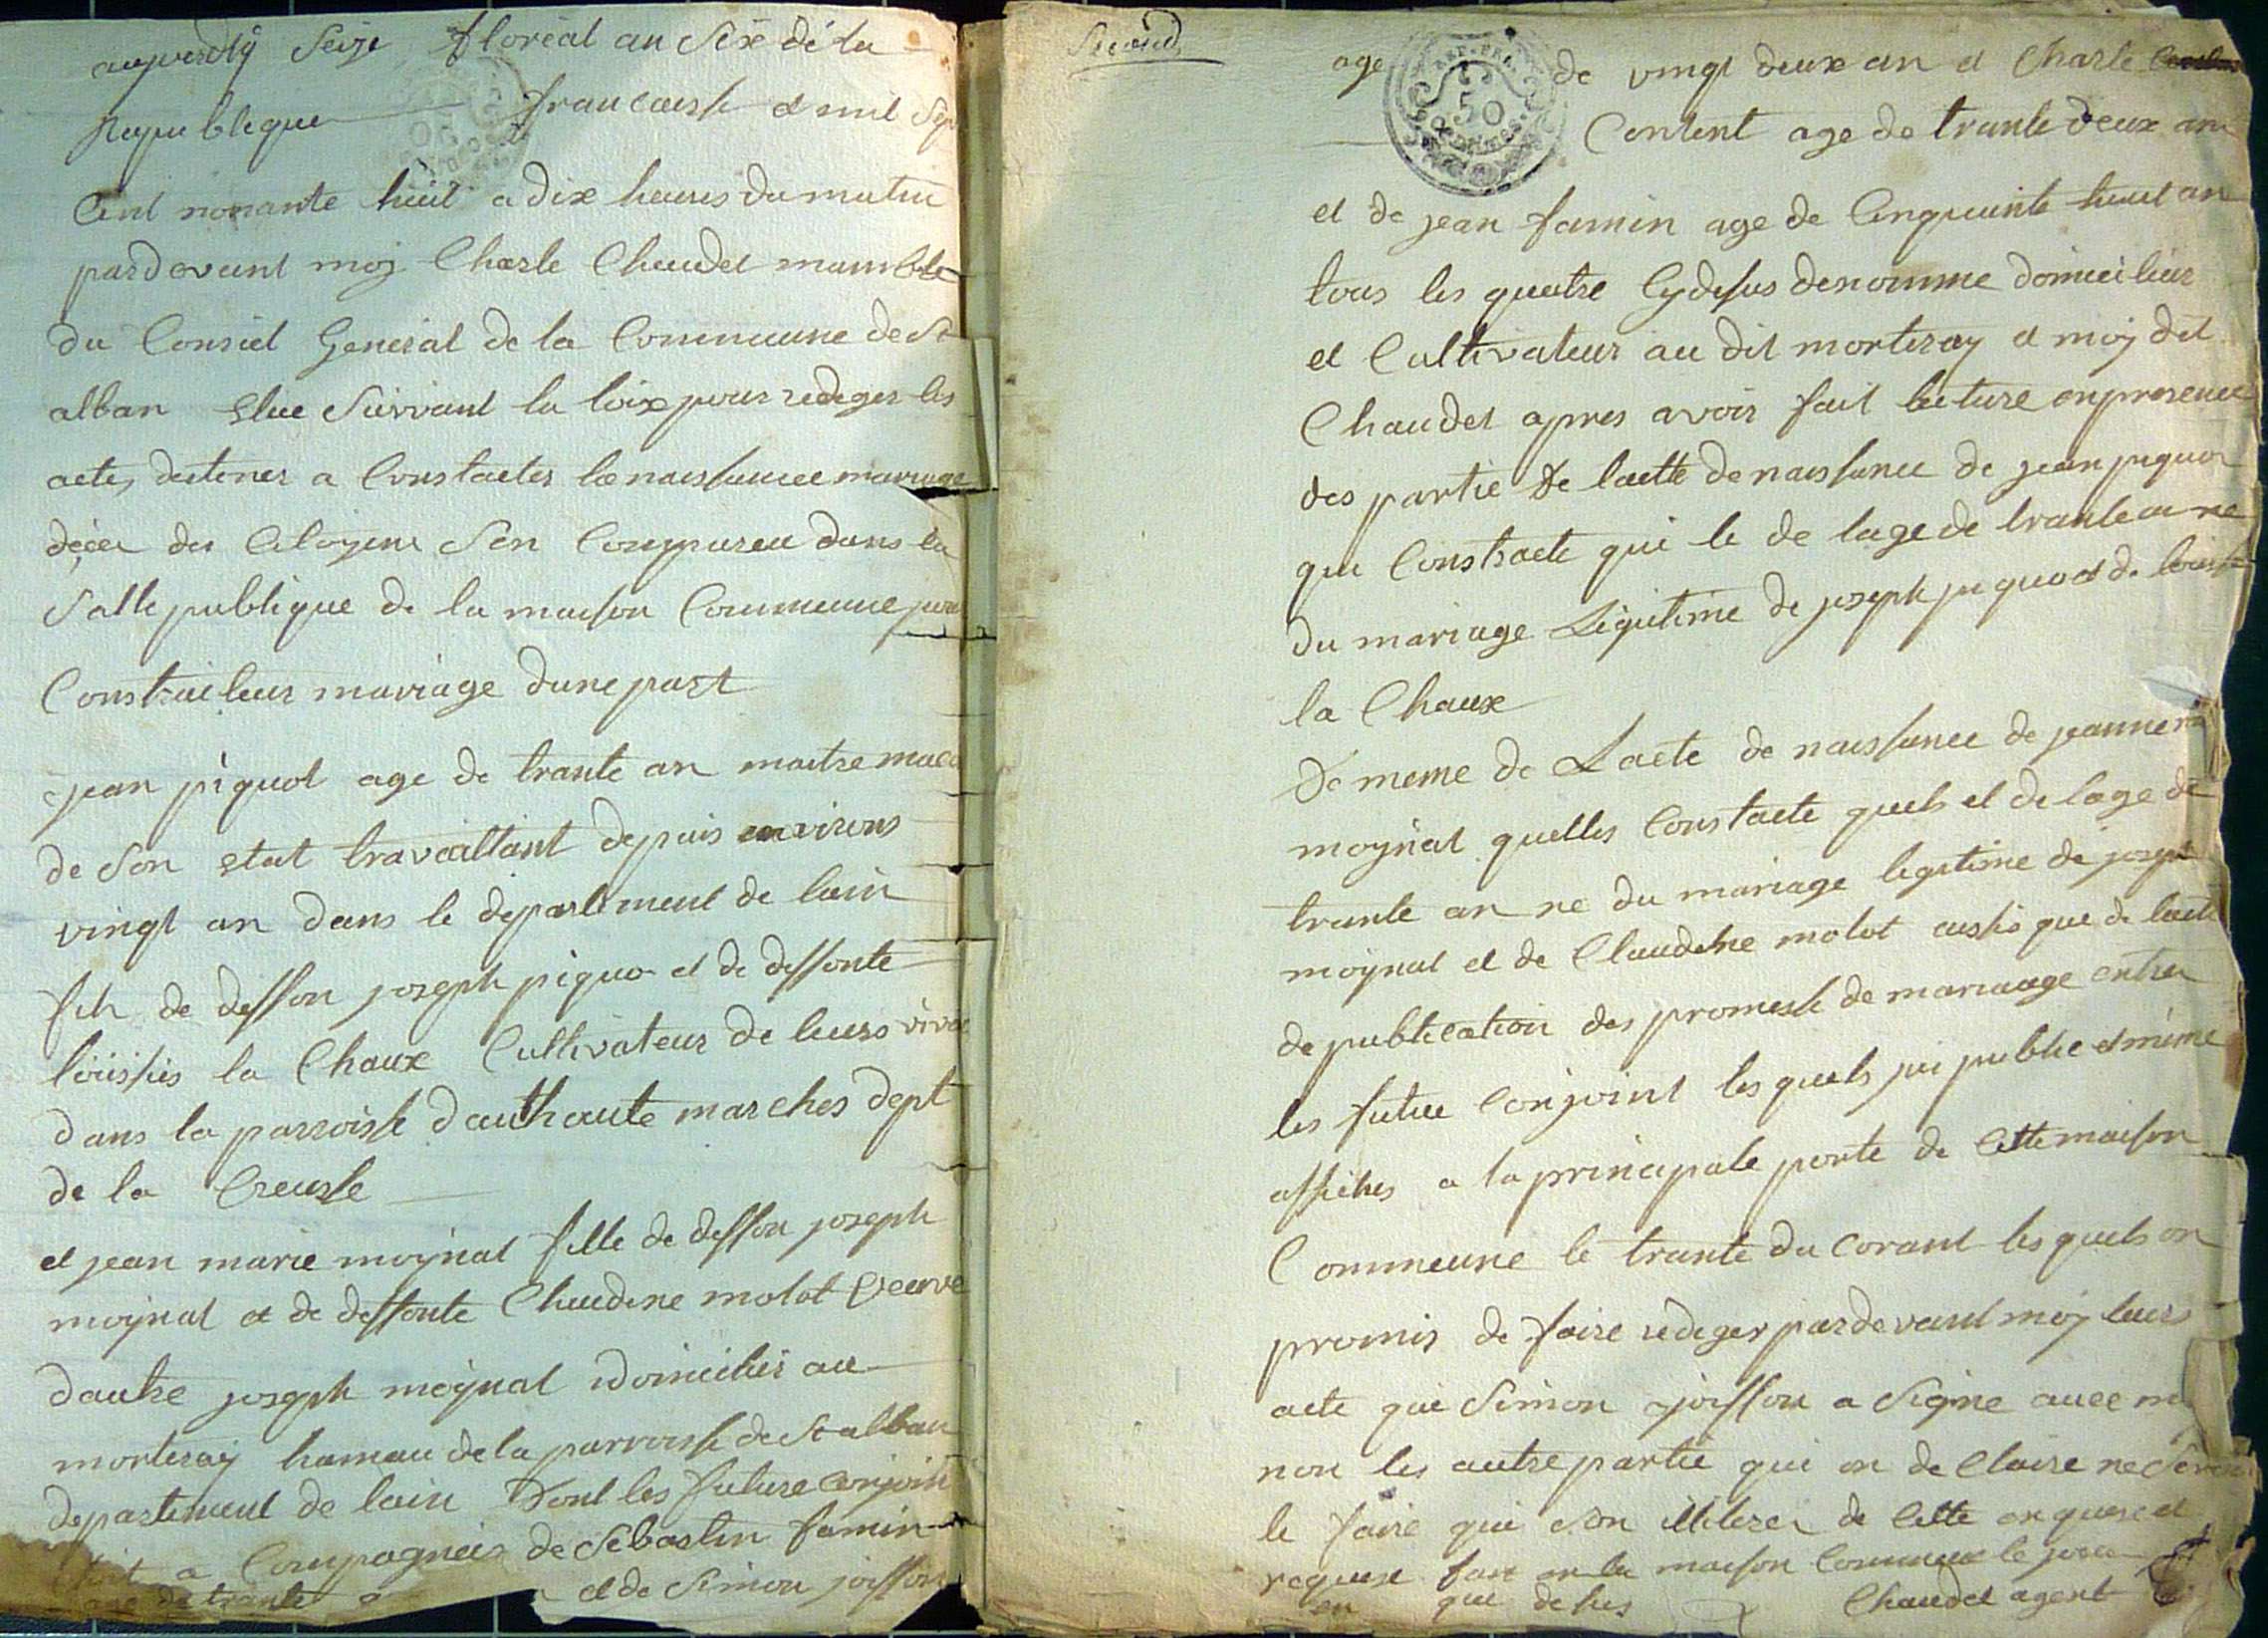 aujverdhy Seize floréal an Six de la
Republeque francaisse et mil Sep
Cent nonante huit a dix heures du matin
pardevant moy Charle Chaudet mamble
du Consiel General de la Commeune de St
alban elue Suivvant la loix pour rediger les
acte, destener a Constacter la naissance mariage
décer des Citoyens Son Compareu dans la
Salle publique de la maison Commeune pour
Constraie leur mariage dune part
jean piquot age de trante an maitre maca
de Son etat travaillant depuis environs
vingt an dans le departement de lain
fils de deffon joseph piquo et de deffonte
loüisies la Chaux Cultivateur de leurs viva
dans la parroisse dauthaute marches dept
de la Creusse
et jean marie moynat fille de deffon joseph
moynat et de deffonte Claudine molot veuve
dautre joseph moynat idomicilier au
morteray hameau de la parroisse de St alban
departement de lain Dont les future conjoin
a Compagneis de Sebastin famin
age de trante a et de Simon joiffon
Second
REP. FRA.
50
Centimes
age de vingt deux an et Charle
Content age de trante deux an
et de jean famin age de Cinquante huit an
tous les quatre Cydesus denomme domicilier
et Cultivateur au dit morteray et moy dit
Chaudet apres avoir fait lecture enpresence
des partie De lactte de naissance de jean piquot
que Constracte qui le de lage de trante an ne
du mariage Legitime de joseph piquo et de louisse
la Chaux
De meme de Lacte de naissance de jeanneria
moynat quelles Constacte quels et de lage de
trante an ne du mariage legitime de joseph
moynat et de Claudine molot ausis que de lacte
de publication des promesse de mariaage entre
les futue Conjoint les quels jai publie et mème
affiches a la principale porte de Cette maison
Commeune le trante du corant les quels on
promis de faire rediger pardevant moy leurs
acte que Simon joiffon a Signe avec moy
non les autre partie qui on de Claire ne Savoir
le faire qui Son illiterer de Cette en quere et
requese fait en la maison Commeune le jour
en que de sus Chaudet agent